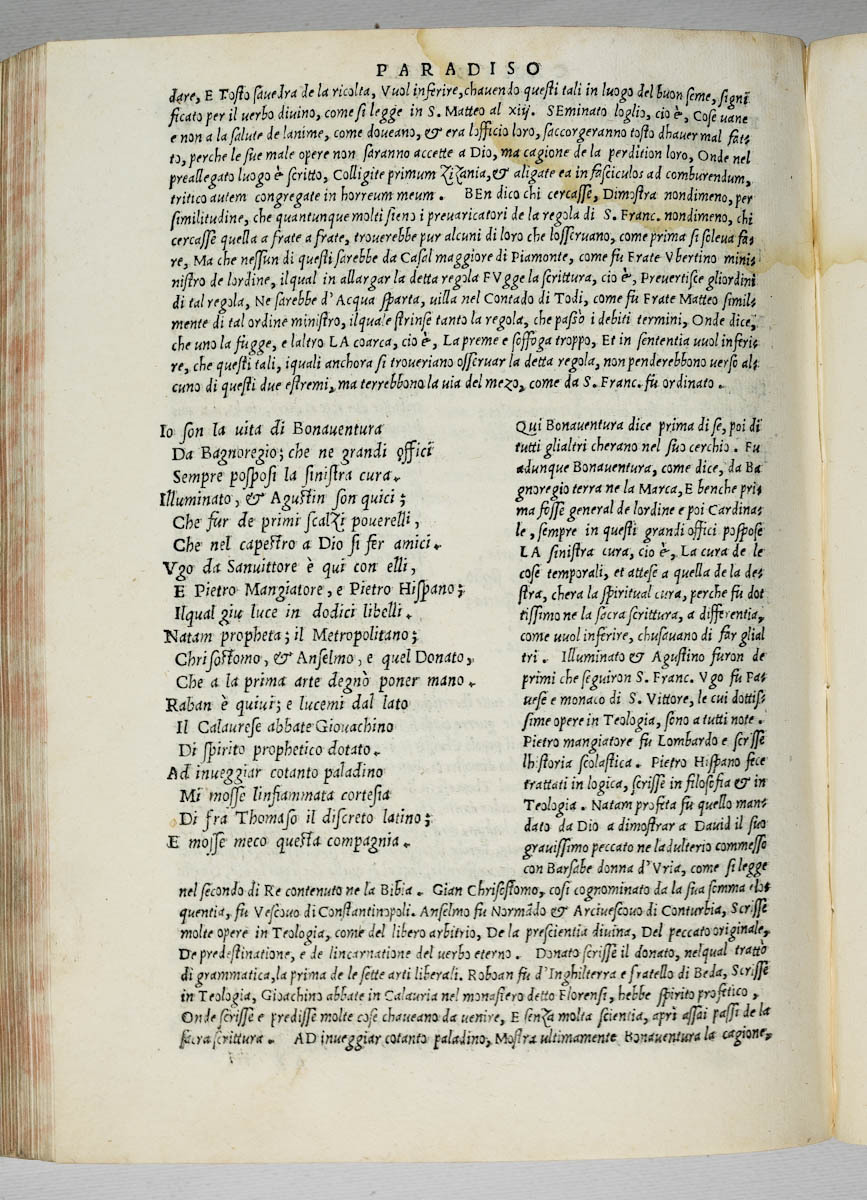 PARADISO
dare, E Tosto savedra de la ricolta, Vuol inferire, chavendo questi tali in luogo del buon seme, signi
ficato per il verbo divino, come si legge in S. Matteo al xiij. SEminato loglio, cio è, Cose vane
e non a la salute de lanime, come doveano, & era lofficio loro, saccorgeranno tosto dhaver mal fat-
to, perche le sue male opere non saranno accette a Dio, ma cagione de la perdition loro, Onde nel
preallegato luogo è scritto, Colligite primum Zizania, & aligate ea in fasciculos ad comburendum,
tritico autem congregate in horreum meum. BEn dico chi cercasse, Dimostra nondimeno, per
similitudine, che quantunque molti sieno i prevaricatori de la regola di S. Franc. nondimeno, chi
cercasse quella a frate a frate, troverebbe pur alcuni di loro che losservano, come prima si soleva fa-
re, Ma che nessun di questi sarebbe da Casal maggiore di Piamonte, come fu Frate Vbertino mini-
nistro de lordine, il qual in allargar la detta regola FVgge la scrittura, cio è, Prevertisce gliordini
di tal regola, Ne sarebbe d'Acqua sparta, villa nel Contado di Todi, come fu Frate Matteo simil-
mente di tal ordine ministro, ilquale strinse tanto la regola, che passò i debiti termini, Onde dice,
che uno la fugge, e laltro LA coarca, cio è, La preme e soffoga troppo, Et in sententia vuol inferi-
re, che questi tali, iquali anchora si troveriano osservar la detta regola, non penderebbono verso al-
cuno di questi due estremi, ma terrebbono la via del mezo, come da S. Franc. fu ordinato.
Io son la vita di Bonaventura
Da Bagnoregio; che ne grandi offici
Sempre posposi la sinistra cura.
Illuminato, & Agustin son quici;
Che fur de primi scalzi poverelli,
Che nel capestro a Dio si fer amici.
Vgo da Sanvittore è qui con elli,
E Pietro Mangiatore, e Pietro Hispano;
Ilqual giu luce in dodici libelli.
Natam propheta; il Metropolitano;
Chrisostomo, & Anselmo, e quel Donato,
Che a la prima arte degnò poner mano.
Raban è quivi; e lucemi dal lato
Il Calaurese abbate Giovachino
Di spirito prophetico dotato.
Ad inveggiar cotanto paladino
Mi mosse linfiammata cortesia
Di fra Thomaso il discreto latino;
E mosse meco questa compagnia.
QUi Bonaventura dice prima di se, poi di
tutti glialtri cherano nel suo cerchio. Fu
adunque Bonaventura, come dice, da Ba
gnoregio terra ne la Marca, E benche pri-
ma fosse general de lordine e poi Cardina-
le, sempre in questi grandi offici pospose
LA sinistra cura, cio è, La cura de le
cose temporali, et attese a quella de la de-
stra, chera la spiritual cura, perche fu dot
tissimo ne la sacra scrittura, a differentia,
come vuol inferire, chusavano di far glial
tri. Illuminato & Agustino furon de
primi che seguiron S. Franc. Vgo fu Pa-
vese e monaco di S. Vittore, le cui dottis-
sime opere in Teologia, sono a tutti note.
Pietro mangiatore fu Lombardo e scrisse
lhistoria scolastica. Pietro Hispano fece
trattati in logica, scrisse in filosofia & in
Teologia. Natam profeta fu quello man-
dato da Dio a dimostrar a David il suo
gravissimo peccato ne ladulterio commesso
con Barsabe donna d'Vria, come si legge
nel secondo di Re contenuto ne la Bibia. Gian Chrisostomo, cosi cognominato da la sua somma elo-
quentia, fu Vescovo di Constantinopoli. Anselmo fu Normãdo & Arcivescovo di Conturbia, Scrisse
molte opere in Teologia, come del libero arbitrio, De la prescientia divina, Del peccato originale,
De predestinatione, e de lincarnatione del verbo eterno. Donato scrisse il donato, nelqual trattò
di grammatica, la prima de le sette arti liberali. Roboan fu d'Inghilterra e fratello di Beda, Scrisse
in Teologia, Gioachino abbate in Calauria nel monasiero detto Florensi, hebbe spirito profetico,
Onde scrisse e predisse molte cose chaveano da venire, E senza molta scientia, aprì assai passi de la
sacra scrittura. AD inveggiar cotanto paladino, Mostra ultimamente Bonaventura la cagione,